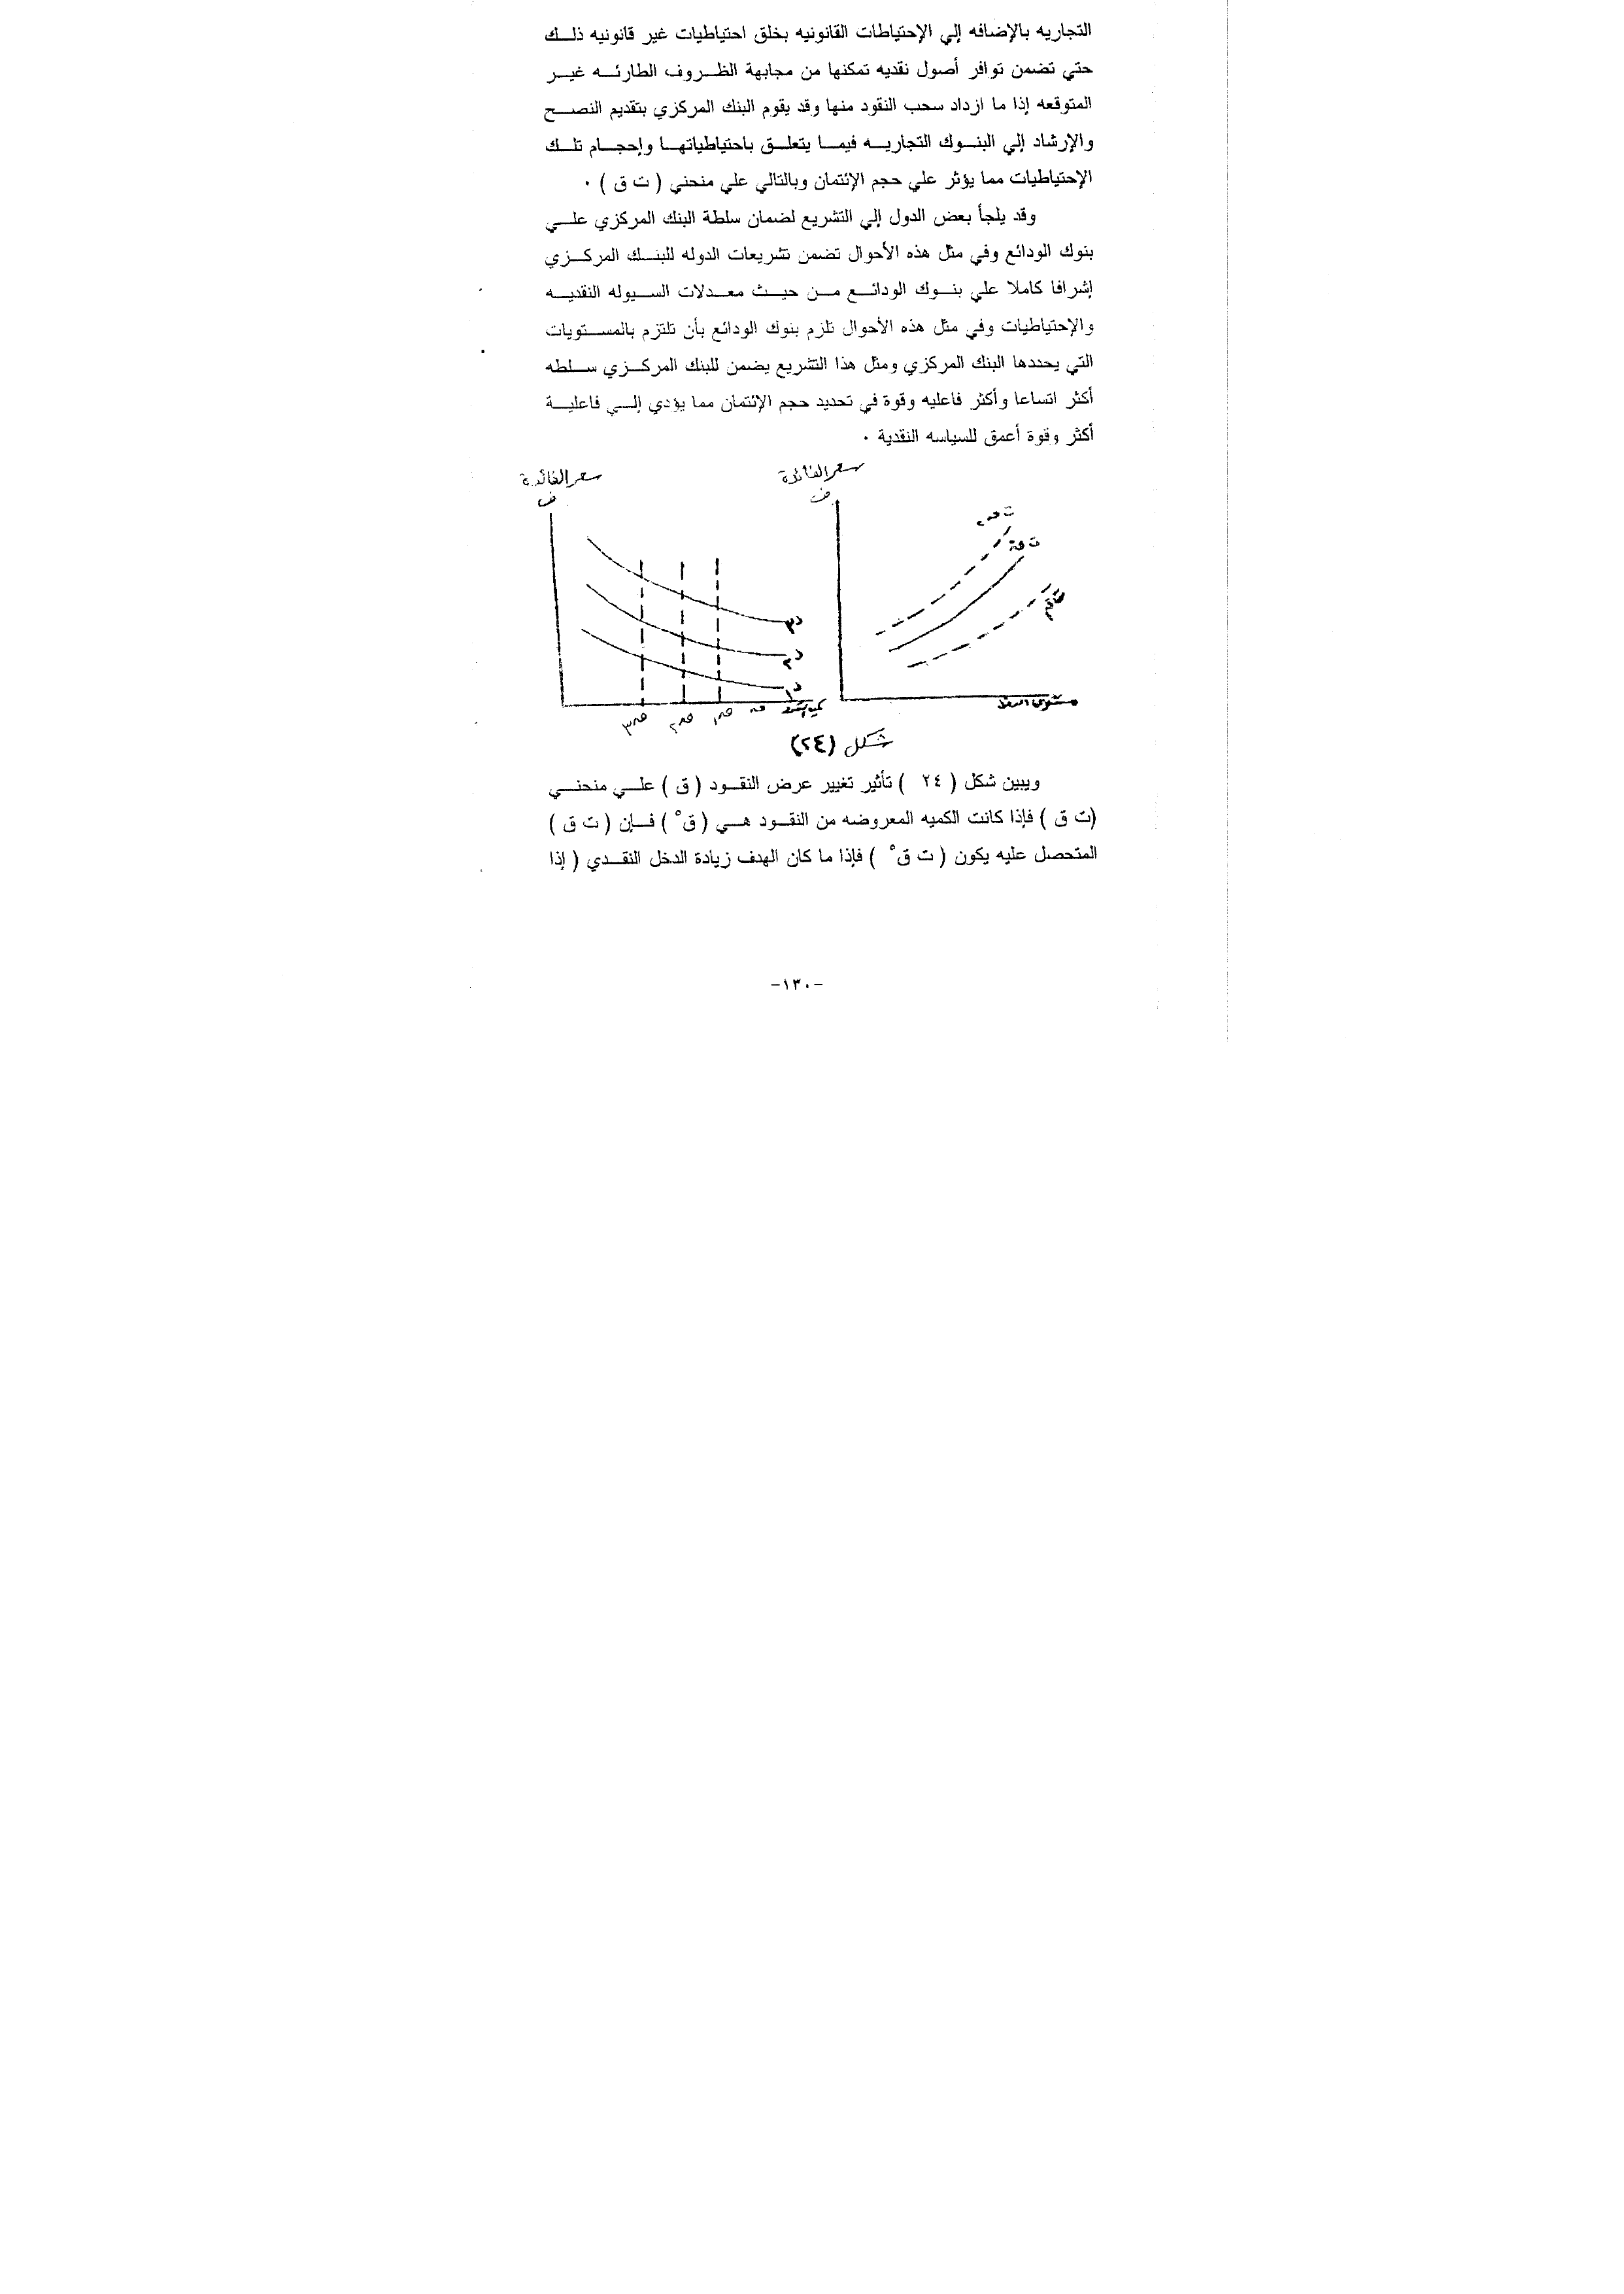 التجاريه بالإضافه إلي الإحتياطات القانونيه بخلق احتياطيات غير قانونيه ذلك
حتي تضمن توافر أصول نقديه تمكنها من مجابهة الظروف الطارئه غير
المتوقعه إذا ما ازداد سحب النقود منها وقد يقوم البنك المركزي بتقديم النصح
والإرشاد إلي البنوك التجاريه فيما يتعلق باحتياطياتها وإحجام تلك
الإحتياطيات مما يؤثر علي حجم الإئتمان وبالتالي علي منحني ( ت ق ) ٠
وقد يلجأ بعض الدول إلي التشريع لضمان سلطة البنك المركزي علي
بنوك الودائع وفي مثل هذه الأحوال تضمن تشريعات الدوله للبنك المركزي
إشرافا كاملا علي بنوك الودائع من حيث معدلات السيوله النقديه
والإحتياطيات وفي مثل هذه الأحوال تلزم بنوك الودائع بأن تلتزم بالمستويات
التي يحددها البنك المركزي ومثل هذا التشريع يضمن للبنك المركزي سلطه
أكثر اتساعا وأكثر فاعليه وقوة في تحديد حجم الإئتمان مما يؤدي إلي فاعلية
أكثر وقوة أعمق للسياسه النقدية ٠
سعر الفائدة
ف
سعر الفائدة
ف
د٣
د٢
د١
شكل (٢٤)
ويبين شكل ( ٢٤ ) تأثير تغيير عرض النقود ( ق ) علي منحني
(ت ق ) فإذا كانت الكميه المعروضه من النقود هي ( ق ْ ) فإن ( ت ق )
المتحصل عليه يكون ( ت ق ْ ) فإذا ما كان الهدف زيادة الدخل النقدي ( إذا
-١٣٠-